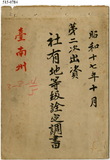 昭和十七年十月
第二次出資
社有地等級詮定調書
臺南州